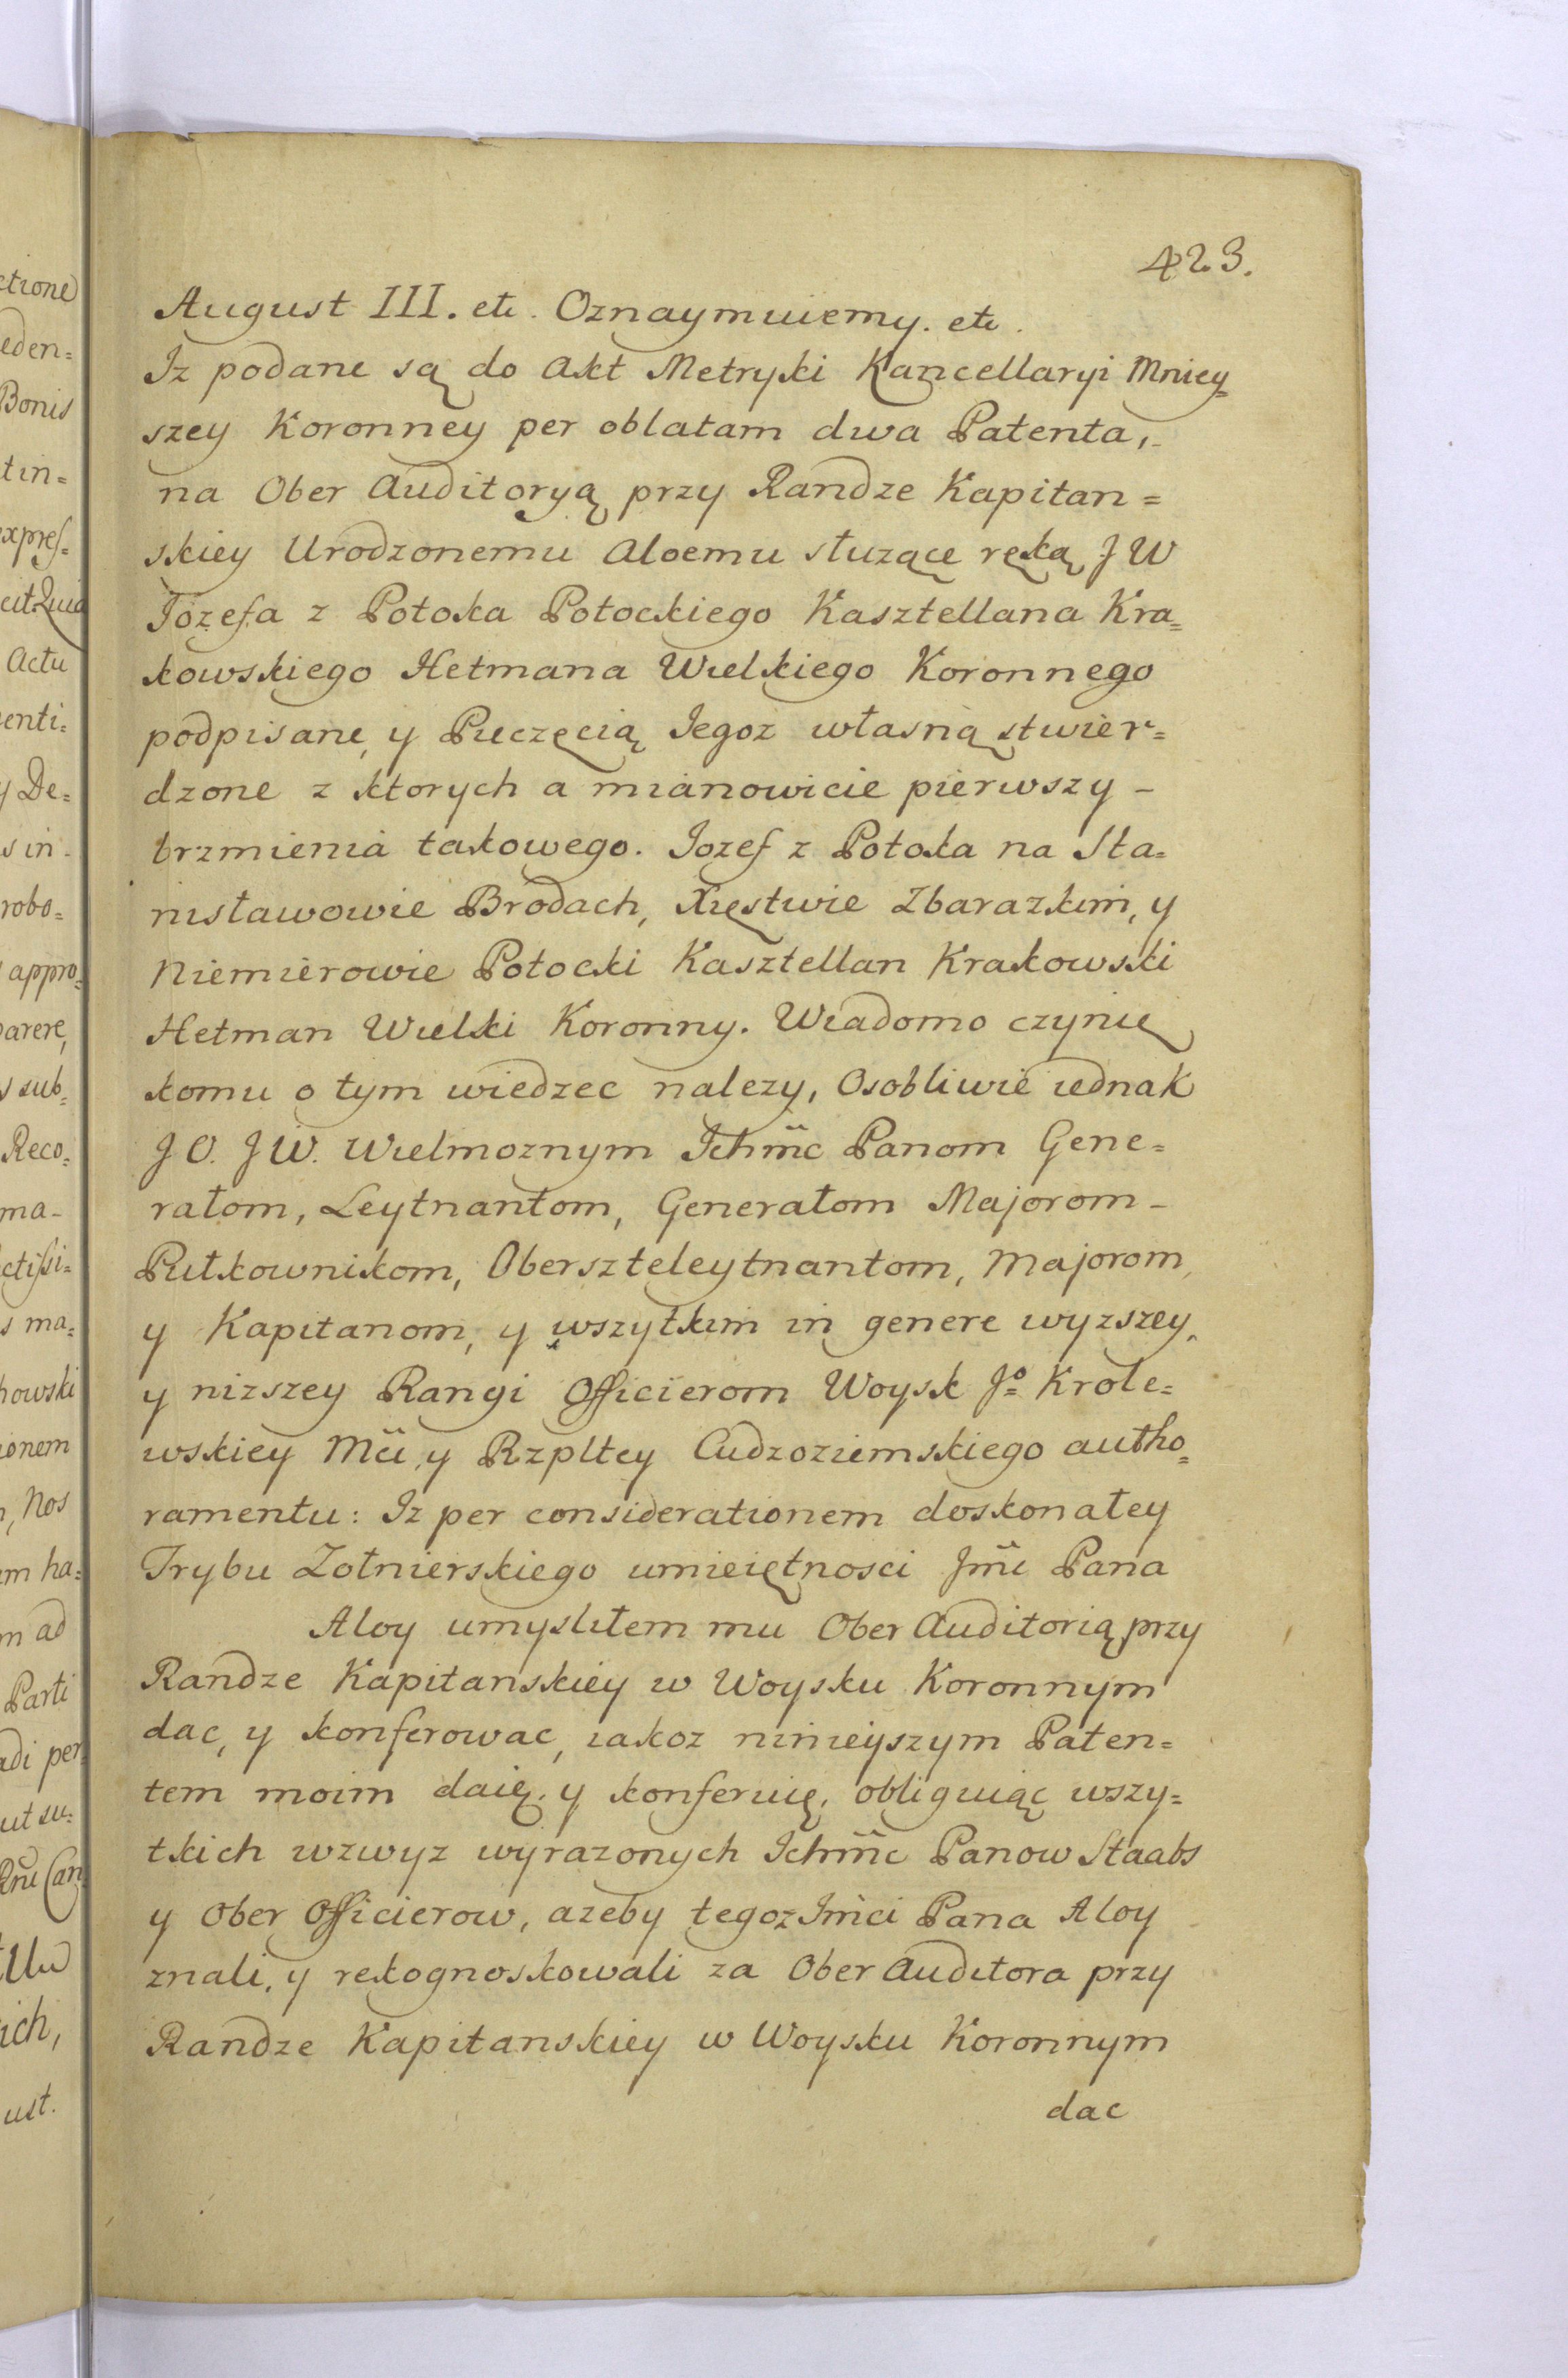 423.
August III. etc. Oznaymuiemy. etc.
Iz podane są do Akt Metryki Kancellaryi Mniey=
szey Koronney per oblatam dwa Patenta,
na Ober Auditoryą przy Randze Kapitan=
skiey Urodzonemu Aloemu słuzące ręką JW
Jozefa z Potoka Potockiego Kasztellana Kra=
kowskiego Hetmana Wielkiego Koronnego
podpisane, y Pieczęcią Jegoz własną stwier=
dzone z ktorych a mianowicie pierwszy –
brzmienia takowego. Jozef z Potoka na Sta=
nisławowie Brodach, Xięstwie Zbarazkim, y
Niemierowie Potocki Kasztellan Krakowski
Hetman Wielki Koronny. Wiadomo czynię
komu o tym wiedzec nalezy, Osobliwie iednak
J O. J W. Wielmoznym Ichmc Panom Gene=
rałom, Leytnantom, Generałom Majorom –
Pułkownikom, Oberszteleytnantom, Majorom,
y Kapitanom, y wszytkim in genere wyzszey,
y nizszey Rangi Officierom Woysk Jo Krole=
wskiey Mci, y Rzpltey Cudzoziemskiego autho=
ramentu: Iz per considerationem doskonałey
Trybu Zołnierskiego umieiętnosci Jmc Pana
Aloy umysliłem mu Ober Auditorią przy
Randze Kapitanskiey w Woysku Koronnym
dac, y konferowac, iakoz ninieyszym Paten=
tem moim daię, y konferuię, obliguiąc wszy=
tkich wzwyz wyrazonych Ichmc Panow Staabs
y Ober Officierow, azeby tegoz Jmci Pana Aloy
znali, y rekognoskowali za Ober Auditora przy
Randze Kapitanskiey w Woysku Koronnym
dac